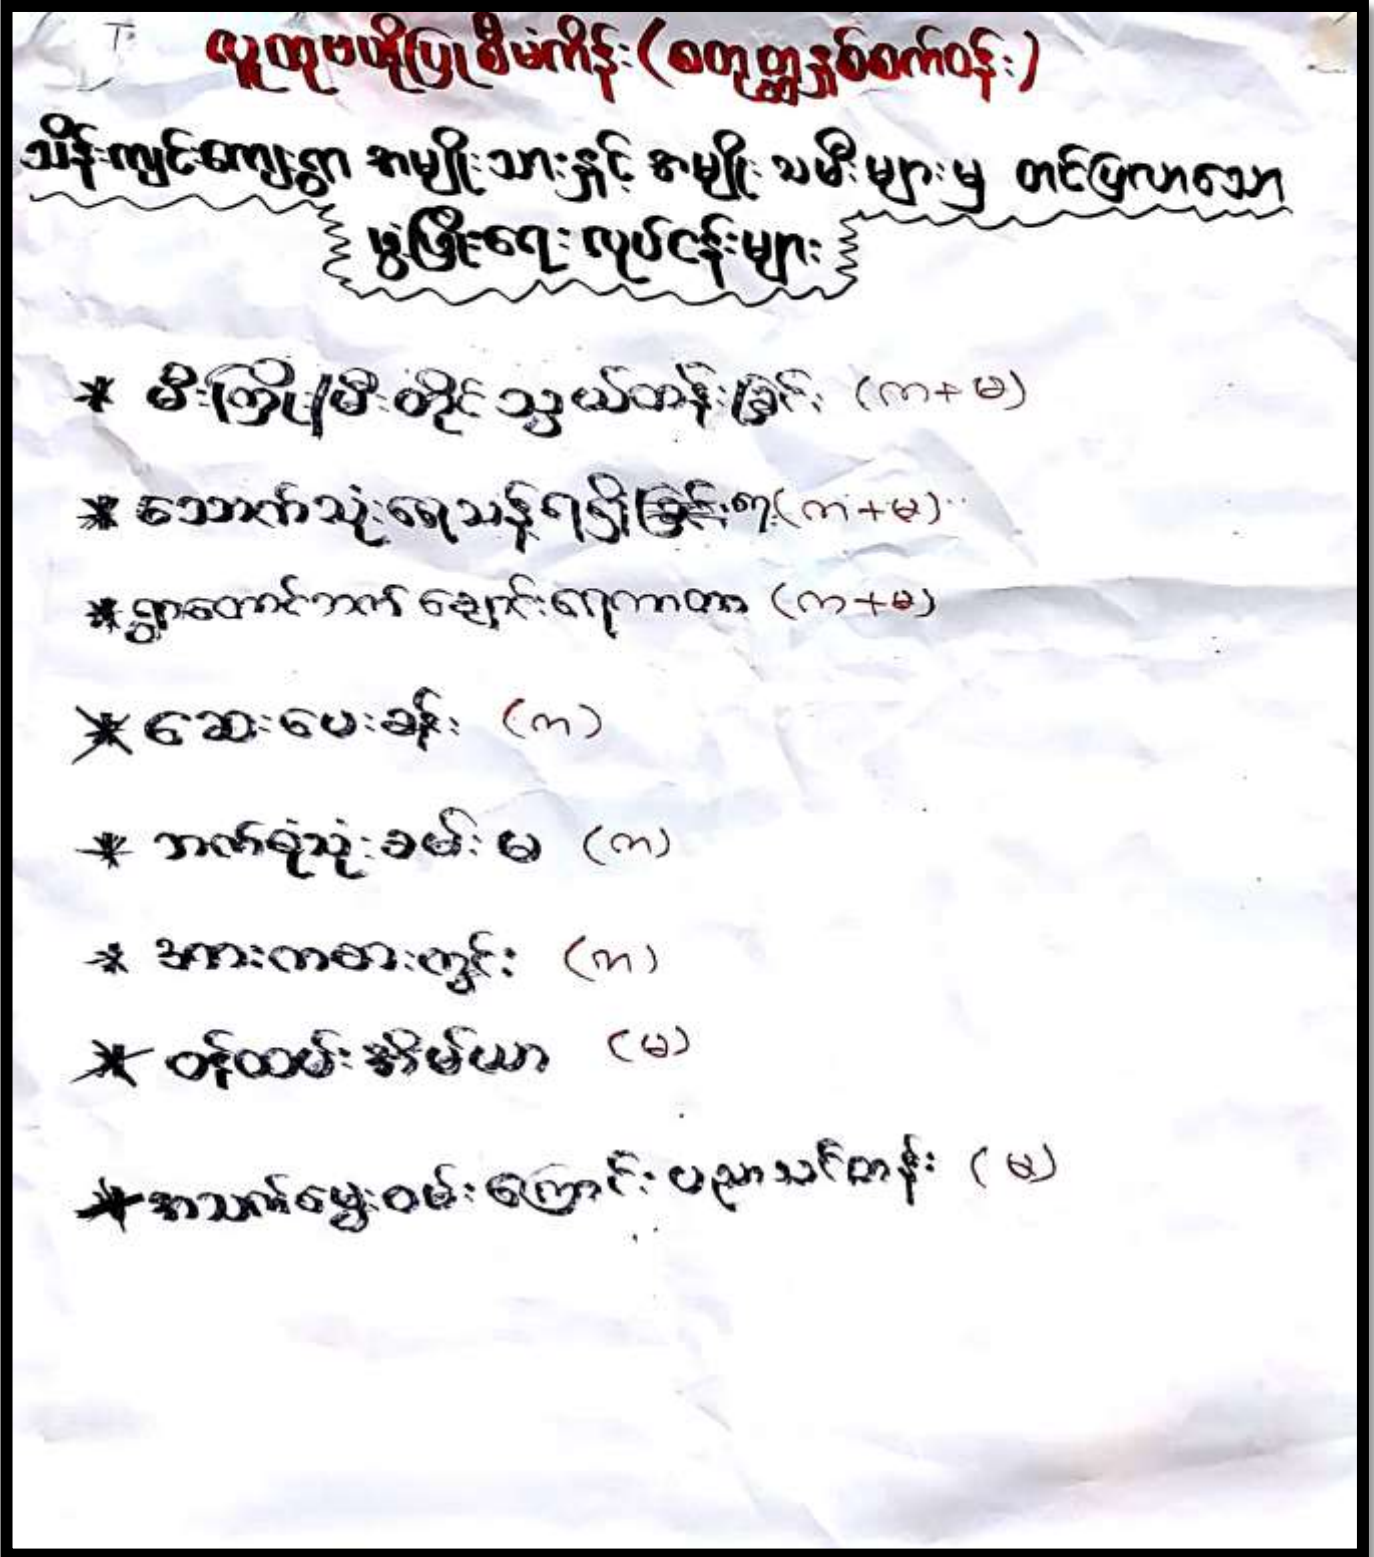 လူထုဗဟိုပြုစီမံကိန်း (စတုတ္ထနှစ်စက်ဝန်း)
သိန်းကျင်းကျေးရွာ အမျိုးသားနှင့် အမျိုးသမီးများမှ တင်ပြလာသော
ဖွံ့ဖြိုးရေးလုပ်ငန်းများ
* မီးကြိုး/မီးတိုင် သွယ်တန်းခြင်း (က+မ)
* သောက်သုံးရေသန့်ရရှိရေး (က+မ)
* ရွာတောင်ဘက် ချောင်းရေကာတာ (က+မ)
* ဆေးပေးခန်း (က)
* ဘက်စုံသုံးခမ်းမ (က)
* အားကစားကွင်း (က)
* ဝန်ထမ်းအိမ်ယာ (မ)
* အသက်မွေးဝမ်းကြောင်းပညာသင်တန်း (မ)